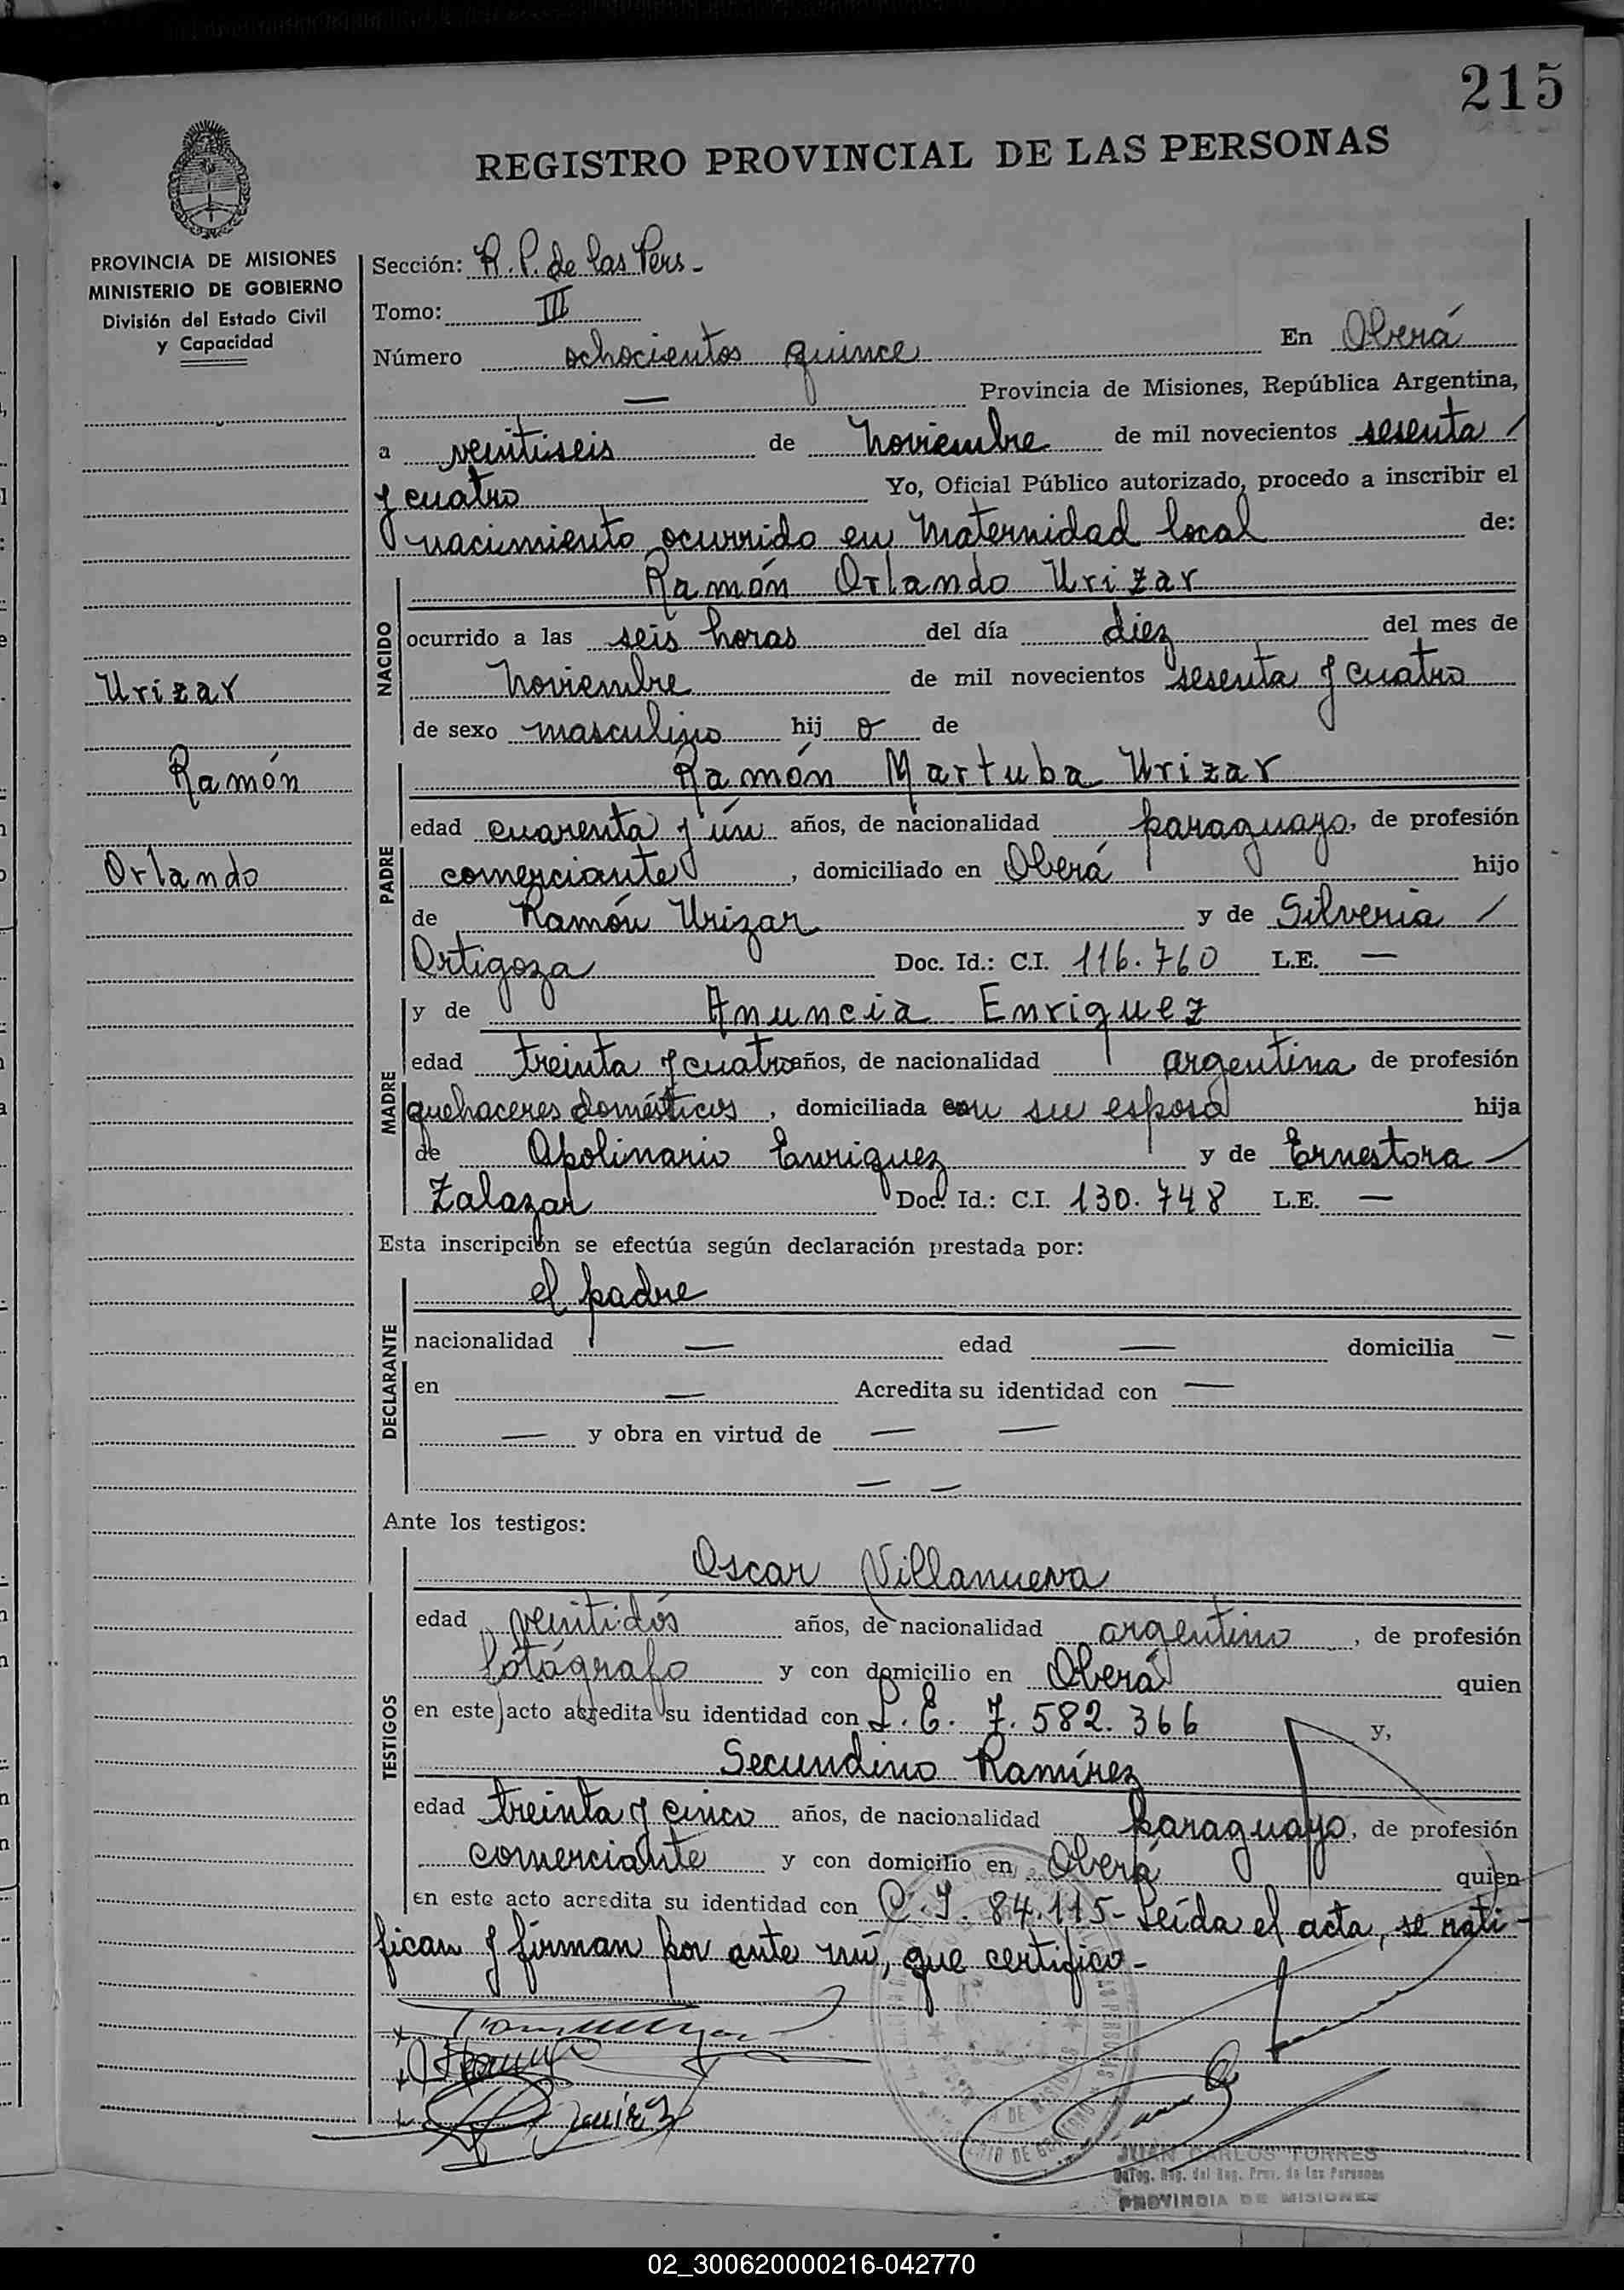 215
REGISTRO PROVINCIAL DE LAS PERSONAS
PROVINCIA DE MISIONES
MINISTERIO DE GOBIERNO
División del Estado Civil
y Capacidad
Urizar
Ramón
Orlando
Sección: R. P. de las Pers -
Tomo: III
Número ochocientos quince En Oberá
— Provincia de Misiones, República Argentina,
a veintiseis de Noviembre de mil novecientos sesenta /
y cuatro Yo, Oficial Público autorizado, procedo a inscribir el
nacimiento ocurrido en Maternidad local de:
NACIDO
Ramón Orlando Urizar
ocurrido a las seis horas del día diez del mes de
Noviembre de mil novecientos sesenta y cuatro
de sexo masculino hij o de
PADRE
Ramón Martuba Urizar
edad cuarenta y ún años, de nacionalidad paraguayo, de profesión
comerciante, domiciliado en Oberá hijo
de Ramón Urizar y de Silveria /
Ortigoza Doc. Id.: C.I. 116.760 L.E. —
MADRE
y de Anuncia Enriquez
edad treinta y cuatro años, de nacionalidad argentina de profesión
quehaceres domésticos, domiciliada con su esposo hija
de Apolinario Enriquez y de Ernestora —
Zalazar Doc. Id.: C.I. 130.748 L.E. —
Esta inscripción se efectúa según declaración prestada por:
DECLARANTE
el padre
nacionalidad — edad — domicilia —
en — Acredita su identidad con —
— y obra en virtud de — —
— —
Ante los testigos:
TESTIGOS
Oscar Villanueva
edad veintidós años, de nacionalidad argentino, de profesión
fotógrafo y con domicilio en Oberá quien
en este acto acredita su identidad con L. E. 7.582.366 y,
Secundino Ramírez
edad treinta y cinco años, de nacionalidad paraguayo, de profesión
comerciante y con domicilio en Oberá quien
en este acto acredita su identidad con C. I. 84.115- Leída el acta, se rati-
fican y firman por ante mí, que certifico -
JUAN CARLOS TORRES
PROVINCIA DE MISIONES
02_300620000216-042770